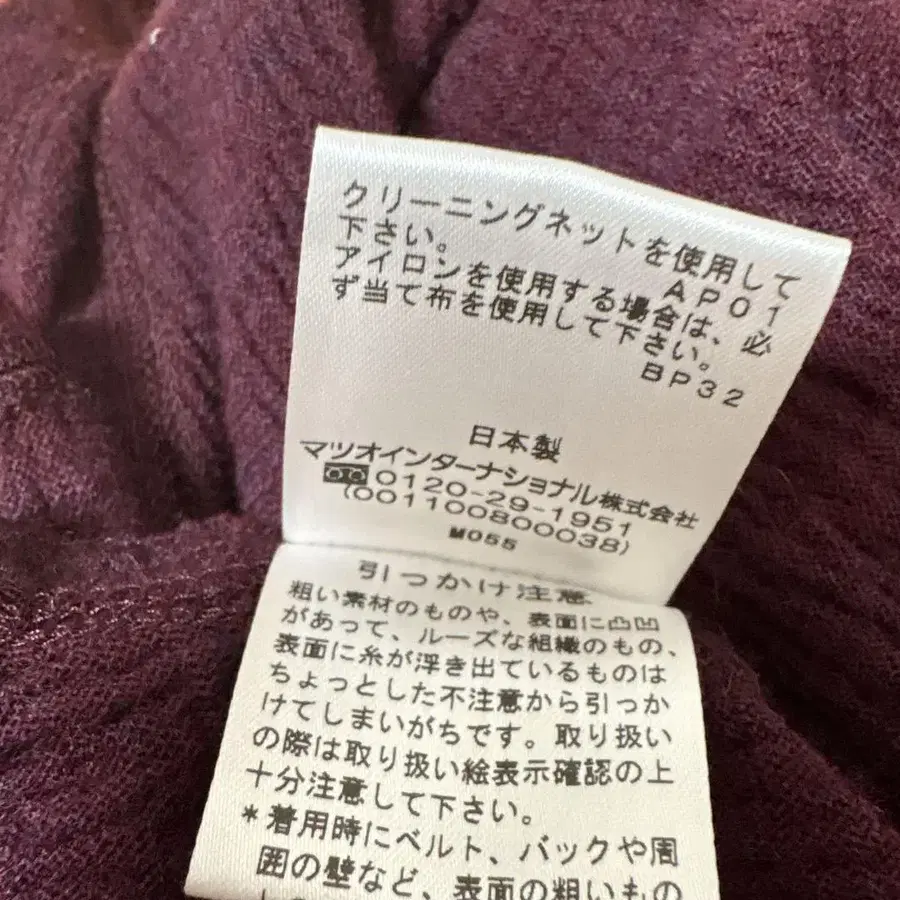 クリーニングネットを使用して
下さい。 AP01
アイロンを使用する場合は、必
ず当て布を使用して下さい。
BP32
日本製
マツオインターナショナル株式会社
0120-29-1951
(001100800038)
M055
引っかけ注意
粗い素材のものや、表面に凸凹
があって、ルーズな組織のもの、
表面に糸が浮き出ているものは
ちょっとした不注意から引っか
けてしまいがちです。取り扱い
の際は取り扱い絵表示確認の上
十分注意して下さい。
*着用時にベルト、バックや周
囲の壁など、表面の粗いもの